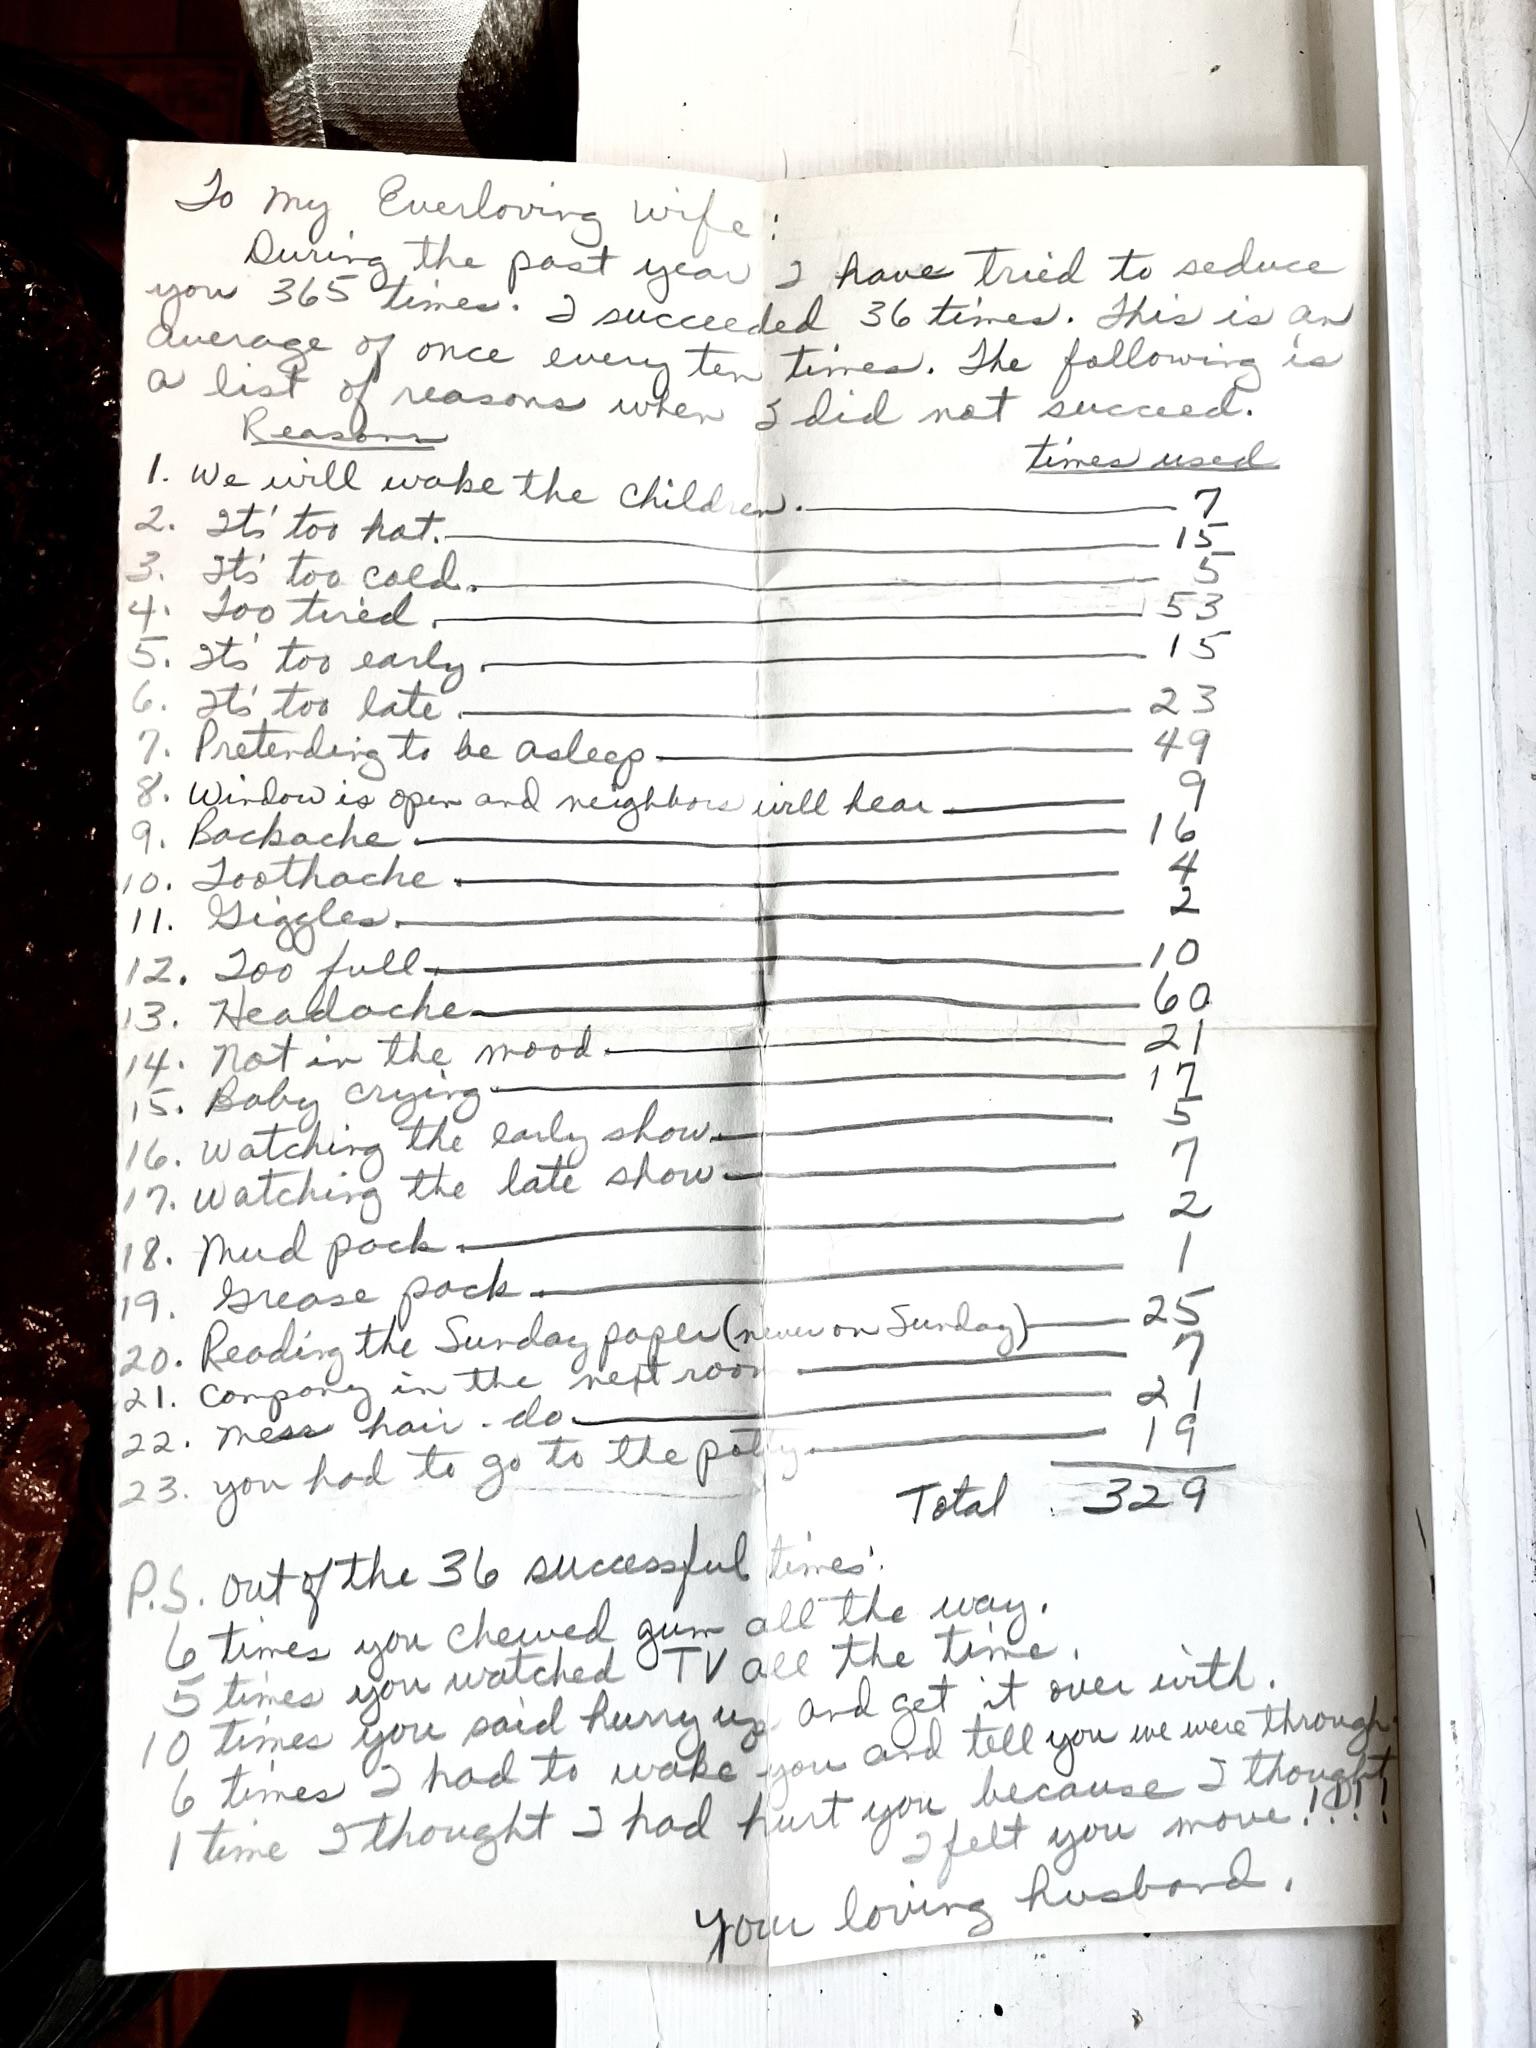 To my Everloving wife:
During the past year I have tried to seduce
you 365 times. I succeeded 36 times. This is an
average of once every ten times. The following is
a list of reasons when I did not succeed.
Reasons times used
1. We will wake the children. 7
2. Its' too hot. 15
3. Its' too cold. 5
4. Too tired. 53
5. Its' too early. 15
6. Its' too late. 23
7. Pretending to be asleep 49
8. Window is open and neighbors will hear 9
9. Backache 16
10. Toothache 4
11. Giggles. 2
12. Too full. 10
13. Headache 60
14. Not in the mood. 21
15. Baby crying 17
16. Watching the early show. 5
17. Watching the late show 7
18. Mud pack. 2
19. Grease pack. 1
20. Reading the Sunday paper (never on Sunday) 25
21. Company in the next room 7
22. Mess hair-do 21
23. You had to go to the potty. 19
Total 329
P.S. Out of the 36 successful times:
6 times you chewed gum all the way.
5 times you watched TV all the time.
10 times you said hurry up and get it over with.
6 times I had to wake you and tell you we were through.
1 time I thought I had hurt you because I thought
I felt you move!!!!
Your loving husband.